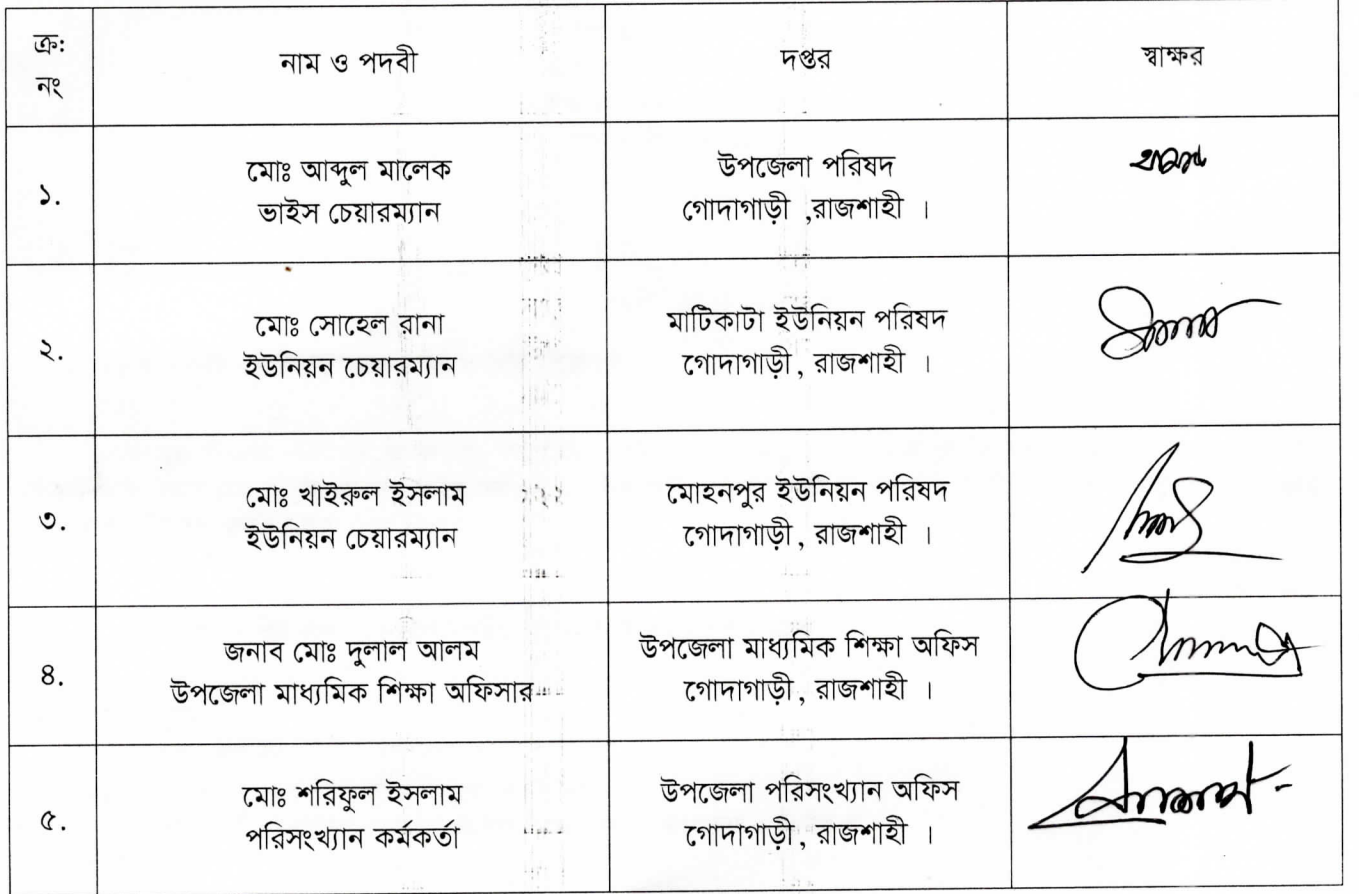 ক্র:
নং
নাম ও পদবী
দপ্তর
স্বাক্ষর
১.
মোঃ আব্দুল মালেক
ভাইস চেয়ারম্যান
উপজেলা পরিষদ
গোদাগাড়ী ,রাজশাহী ।
২.
মোঃ সোহেল রানা
ইউনিয়ন চেয়ারম্যান
মাটিকাটা ইউনিয়ন পরিষদ
গোদাগাড়ী, রাজশাহী ।
৩.
মোঃ খাইরুল ইসলাম
ইউনিয়ন চেয়ারম্যান
মোহনপুর ইউনিয়ন পরিষদ
গোদাগাড়ী, রাজশাহী ।
৪.
জনাব মোঃ দুলাল আলম
উপজেলা মাধ্যমিক শিক্ষা অফিসার
উপজেলা মাধ্যমিক শিক্ষা অফিস
গোদাগাড়ী, রাজশাহী ।
৫.
মোঃ শরিফুল ইসলাম
পরিসংখ্যান কর্মকর্তা
উপজেলা পরিসংখ্যান অফিস
গোদাগাড়ী, রাজশাহী ।